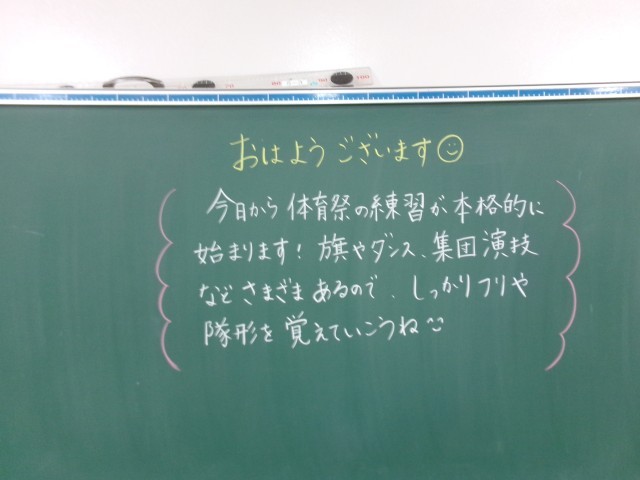 おはようございます☺
今日から体育祭の練習が本格的に
始まります！旗やダンス、集団演技
などさまざまあるので、しっかりフリや
隊形を覚えていこうね